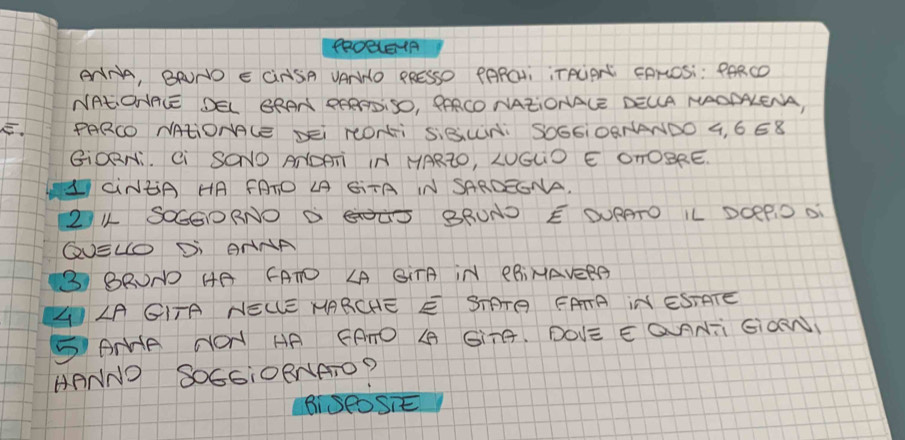 PROBLEMA
ANNA, BRUNO E CINSA VANNO PRESSO PARCHi iTALIANI FAMOSi: PARCO
NAZIONALE DEL GRAN PARADISO, PARCO NAZIONALE DELLA MADDALENA,
E. PARCO NAZIONALE DEi MONTi SiBiLLINi SOGGIORNANDO 4, 6 E 8
GIORNi. Ci SONO ANDATI IN MARZO, LUGLIO E OTTOBRE.
1 CINZIA HA FATTO LA GITA IN SARDEGNA.
2 IL SOGGIORNO Di BRUNO È DURATO IL DOPPIO Di
QUELLO Di ANNA
3 BRUNO HA FATTO LA GITA iN PRiMAVERA
4 LA GITA NELLE MARCHE È STATA FATTA IN ESTATE
5 ANNA NON HA FATTO LA GITA. DOVE E QUANTi GIORNI
HANNO SOGGIORNATO?
RiSPOSTE